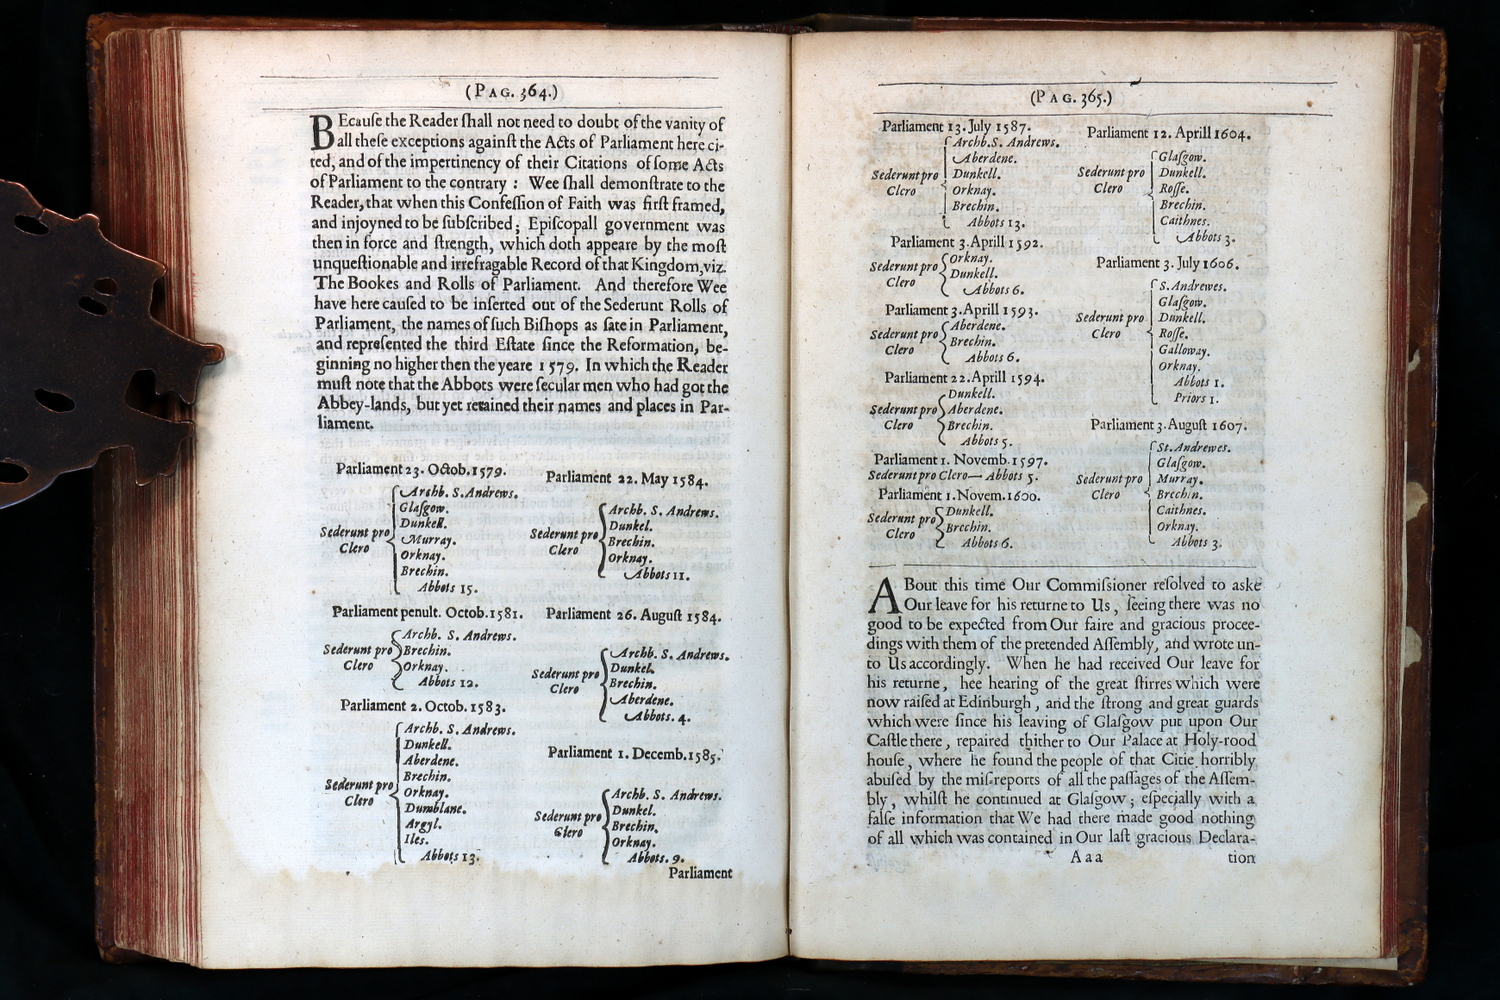 (PAG. 364.)
BEcauſe the Reader ſhall not need to doubt of the vanity of
all theſe exceptions againſt the Acts of Parliament here ci-
ted, and of the impertinency of their Citations of ſome Acts
of Parliament to the contrary : Wee ſhall demonſtrate to the
Reader, that when this Confeſſion of Faith was firſt framed,
and injoyned to be ſubſcribed; Epiſcopall government was
then in force and ſtrength, which doth appeare by the moſt
unqueſtionable and irrefragable Record of that Kingdom, viz.
The Bookes and Rolls of Parliament. And therefore Wee
have here cauſed to be inſerted out of the Sederunt Rolls of
Parliament, the names of ſuch Biſhops as ſate in Parliament,
and repreſented the third Eſtate ſince the Reformation, be-
ginning no higher then the yeare 1579. In which the Reader
muſt note that the Abbots were ſecular men who had got the
Abbey-lands, but yet retained their names and places in Par-
liament.
Parliament 23. Octob. 1579.
Sederunt pro
Clero
Archb. S. Andrews.
Glaſgow.
Dunkell.
Murray.
Orknay.
Brechin.
Abbots 15.
Parliament penult. Octob. 1581.
Sederunt pro
Clero
Archb. S. Andrews.
Brechin.
Orknay.
Abbots 12.
Parliament 2. Octob. 1583.
Sederunt pro
Clero
Archb. S. Andrews.
Dunkell.
Aberdene.
Brechin.
Orknay.
Dumblane.
Argyl.
Iles.
Abbots 13.
Parliament 22. May 1584.
Sederunt pro
Clero
Archb. S. Andrews.
Dunkel.
Brechin.
Orknay.
Abbots 11.
Parliament 26. Auguſt 1584.
Sederunt pro
Clero
Archb. S. Andrews.
Dunkel.
Brechin.
Aberdene.
Abbots. 4.
Parliament 1. Decemb. 1585.
Sederunt pro
Clero
Archb. S. Andrews.
Dunkel.
Brechin.
Orknay.
Abbots. 9.
Parliament
(PAG. 365.)
Parliament 13. July 1587.
Sederunt pro
Clero
Archb. S. Andrews.
Aberdene.
Dunkell.
Orknay.
Brechin.
Abbots 13.
Parliament 3. Aprill 1592.
Sederunt pro
Clero
Orknay.
Dunkell.
Abbots 6.
Parliament 3. Aprill 1593.
Sederunt pro
Clero
Aberdene.
Brechin.
Abbots 6.
Parliament 22. Aprill 1594.
Sederunt pro
Clero
Dunkell.
Aberdene.
Brechin.
Abbots 5.
Parliament 1. Novemb. 1597.
Sederunt pro Clero— Abbots 5.
Parliament 1. Novem. 1600.
Sederunt pro
Clero
Dunkell.
Brechin.
Abbots 6.
Parliament 12. Aprill 1604.
Sederunt pro
Clero
Glaſgow.
Dunkell.
Roſſe.
Brechin.
Caithnes.
Abbots 3.
Parliament 3. July 1606.
Sederunt pro
Clero
S. Andrewes.
Glaſgow.
Dunkell.
Roſſe.
Galloway.
Orknay.
Abbots 1.
Priors 1.
Parliament 3. Auguſt 1607.
Sederunt pro
Clero
St. Andrewes.
Glaſgow.
Murray.
Brechin.
Caithnes.
Orknay.
Abbots 3.
ABout this time Our Commiſsioner reſolved to aske
Our leave for his returne to Us, ſeeing there was no
good to be expected from Our faire and gracious procee-
dings with them of the pretended Aſſembly, and wrote un-
to Us accordingly. When he had received Our leave for
his returne, hee hearing of the great ſtirres which were
now raiſed at Edinburgh, and the ſtrong and great guards
which were ſince his leaving of Glaſgow put upon Our
Caſtle there, repaired thither to Our Palace at Holy-rood
houſe, where he found the people of that Citie horribly
abuſed by the miſ-reports of all the paſſages of the Aſſem-
bly, whilſt he continued at Glaſgow; eſpecially with a
falſe information that We had there made good nothing
of all which was contained in Our laſt gracious Declara-
Aaa
tion